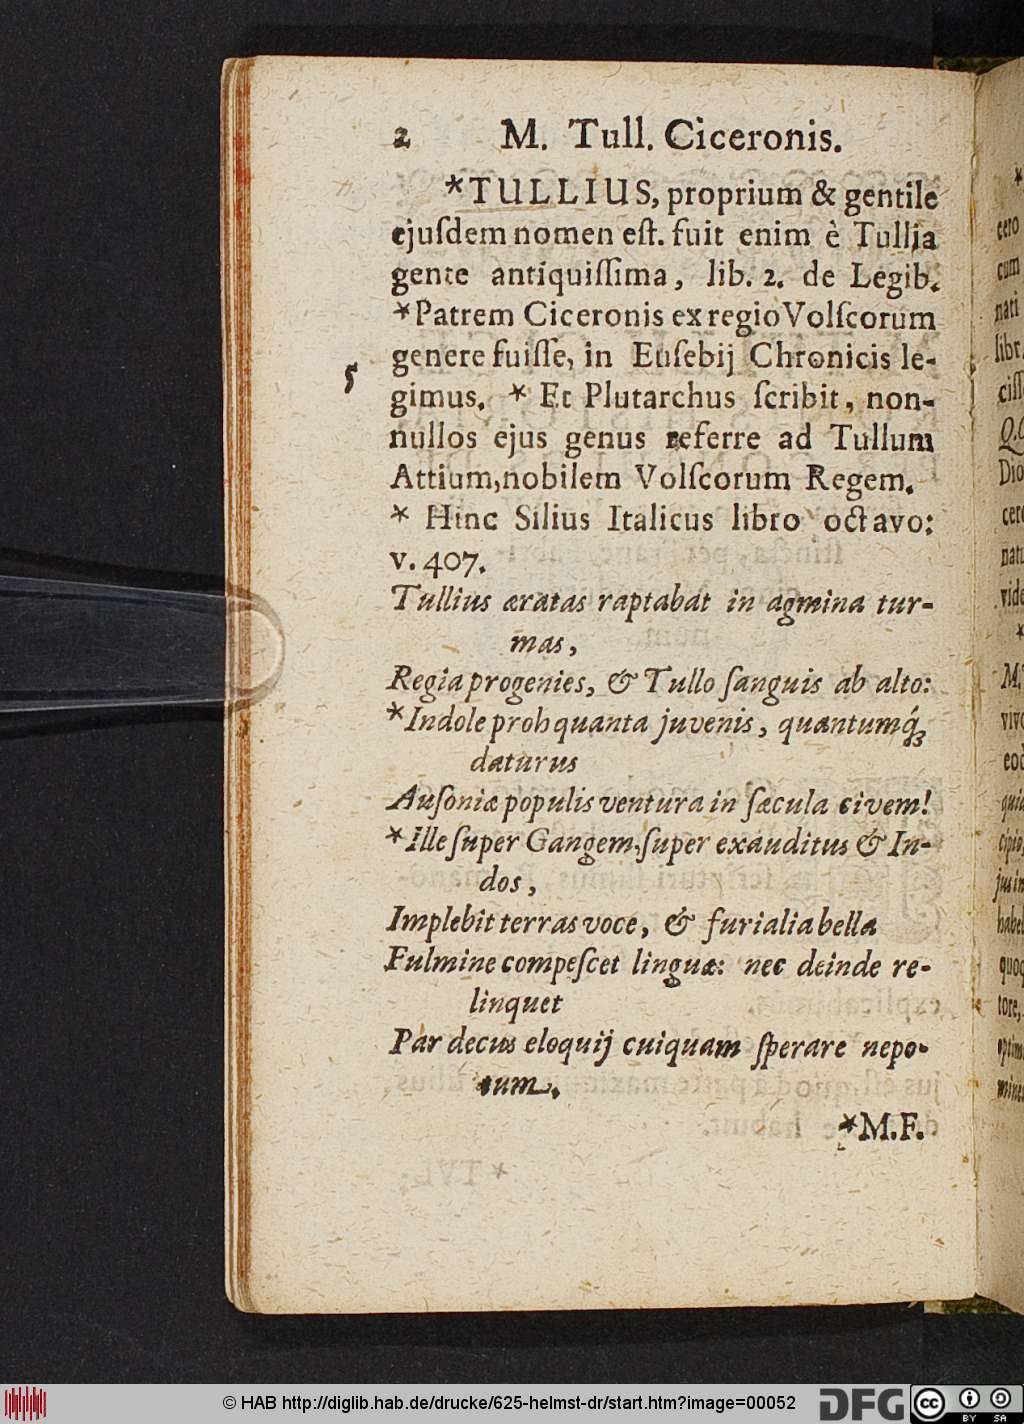 2 M. Tull. Ciceronis.
*TULLIUS, proprium & gentile
ejuſdem nomen eſt. fuit enim è Tullia
gente antiquiſſima, lib. 2. de Legib.
*Patrem Ciceronis ex regio Volſcorum
genere fuiſſe, in Euſebij Chronicis le-
5
gimus. * Et Plutarchus ſcribit, non-
nullos ejus genus referre ad Tullum
Attium, nobilem Volſcorum Regem.
* Hinc Silius Italicus libro octavo:
v. 407.
Tullius æratas raptabat in agmina tur-
mas,
Regia progenies, & Tullo ſanguis ab alto:
*Indole proh quanta juvenis, quantumq́;
daturus
Auſoniæ populis ventura in ſæcula civem!
*Ille ſuper Gangem, ſuper exauditus & In-
dos,
Implebit terras voce, & furialia bella
Fulmine compeſcet linguæ: nec deinde re-
linquet
Par decus eloquij cuiquam ſperare nepo-
tum.
*M.F.
cero
cum
nati
libr.
ciſſ
Dio
cere
natu
vide
M.
vivo
quia
cipio,
jus in
habe
quoq
tore,
optim
mine
© HAB http://diglib.hab.de/drucke/625-helmst-dr/start.htm?image=00052
DFG
cc BY SA